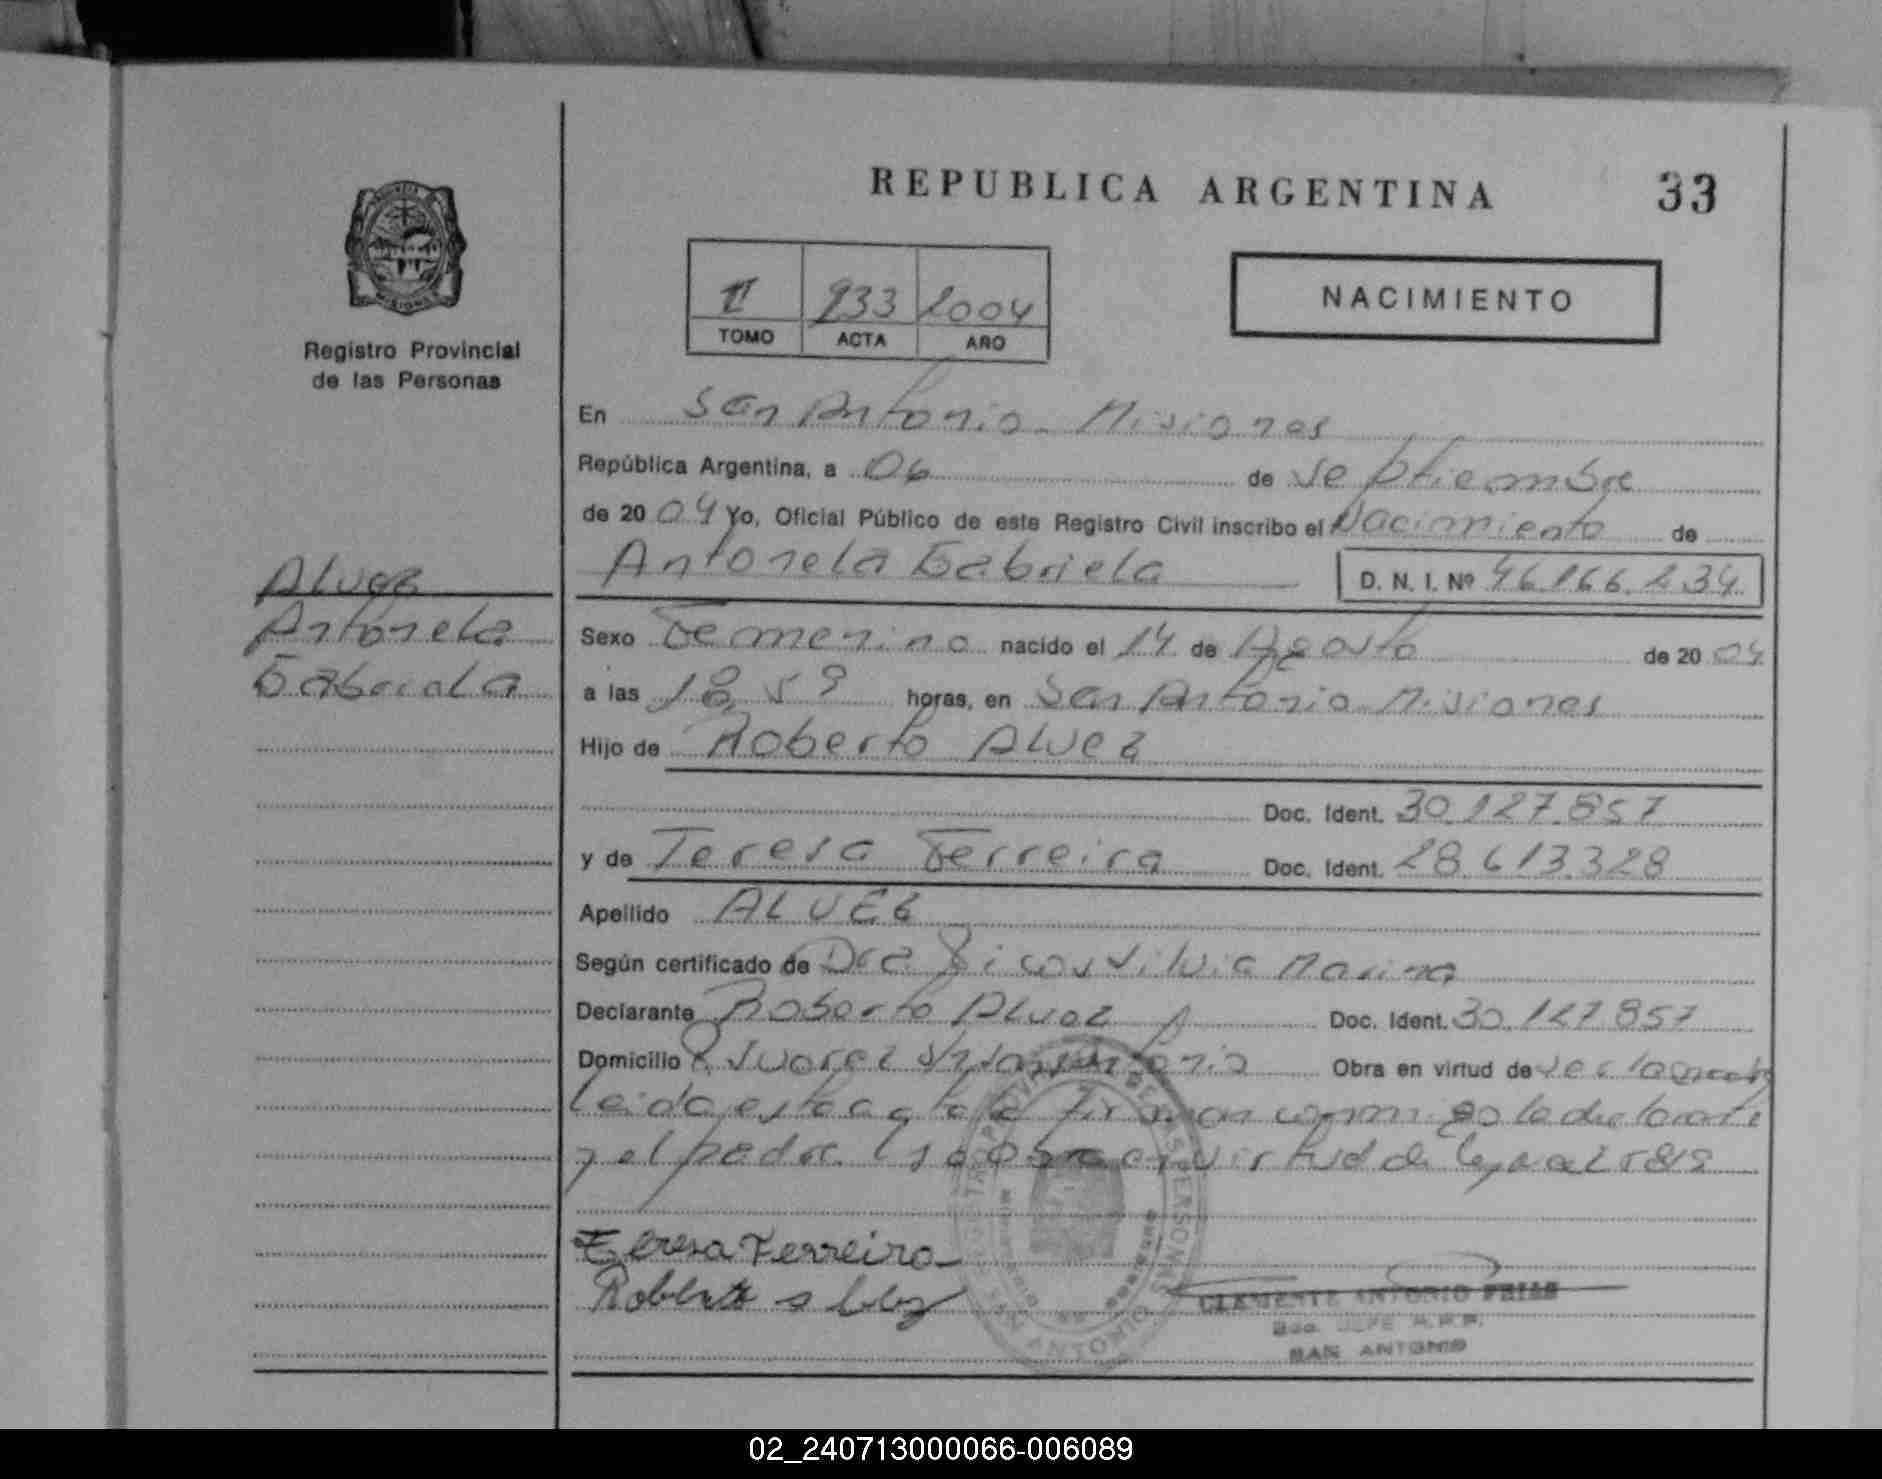 REPUBLICA ARGENTINA
33
Registro Provincial
de las Personas
II 933 2004
TOMO ACTA AÑO
NACIMIENTO
En San Antonio - Misiones
República Argentina, a 06 de Septiembre
de 2004 Yo, Oficial Público de este Registro Civil inscribo el Nacimiento de
Antonela Gabriela D. N. I. Nº 46.166.234
Alvez
Antonela
Gabriela
Sexo Femenino nacido el 14 de Agosto de 2004
a las 18,59 horas, en San Antonio Misiones
Hijo de Roberto Alvez
Doc. Ident. 30.127.857
y de Teresa Ferreira Doc. Ident. 28.613.328
Apellido ALVEZ
Según certificado de Dra Silvia Marina
Declarante Roberto Alvez Doc. Ident. 30.127.857
Domicilio San Antonio Obra en virtud de
Leida esta acta la firman conmigo la declarante
y el padre obra en virtud de
Teresa Ferreira
Roberto
CLEMENTE ANTONIO FRIAS
JEFE R.P.P.
SAN ANTONIO
02_240713000066-006089